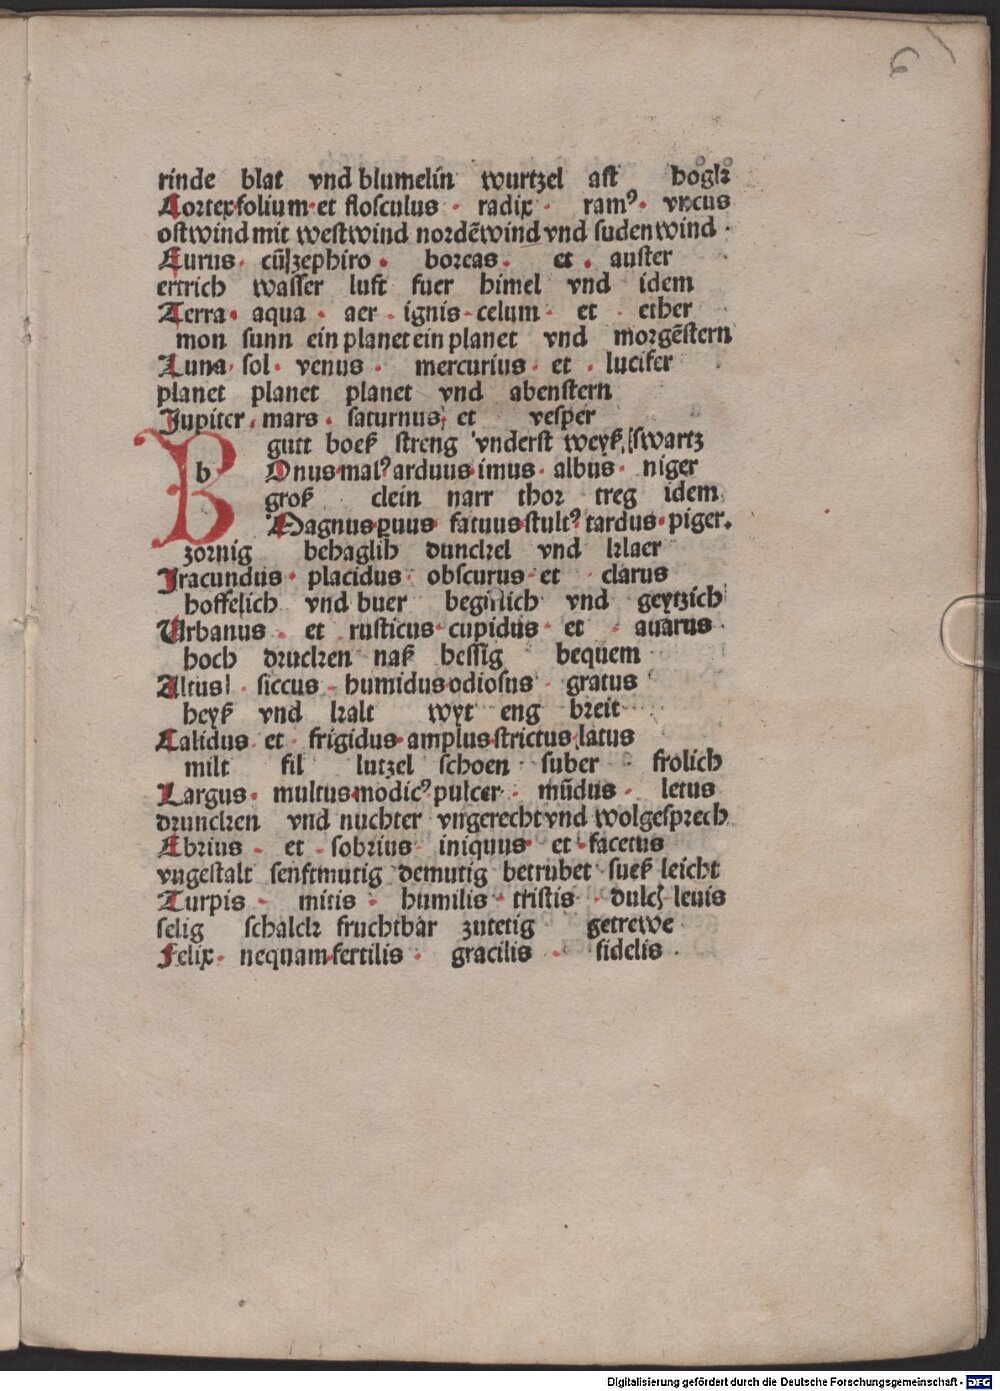 6
rinde blat vnd blumelin wurtzel ast hogk
Cortex folium et flosculus · radix · ramꝰ · vncus
ostwind mit westwind nordē wind vnd suden wind ·
Eurus · cū zephiro · boreas · et · auster
ertrich wasser luft fuer himel vnd idem
Terra · aqua · aer · ignis · celum · et · ether
mon sunn ein planet ein planet vnd morgēstern
Luna · sol · venus · mercurius · et · lucifer
planet planet planet vnd abenstern
Jupiter · mars · saturnus et vesper
gutt boeß streng vnderst weyß swartz
B b Onus malꝰ arduus imus · albus · niger
groß clein narr thor treg idem
Magnus ꝑuus fatuus stultꝰ tardus · piger.
zornig behaglih dunckel vnd klaer
Iracundus · placidus · obscurus · et · clarus
hoffelich vnd buer begirlich vnd geytzich
Urbanus · et rusticus · cupidus · et · auarus
hoch drucken naß hessig bequem
Altus · siccus · humidus odiosus gratus
heyß vnd kalt wyt eng breit
Calidus et frigidus · amplus strictus latus
milt fil lutzel schoen suber frolich
Largus · multus modicꝰ pulcer · mūdus · letus
druncken vnd nuchter vngerecht vnd wolgesprech
Ebrius · et · sobrius iniquus · et · facetus
vngestalt senftmutig demutig betrubet sueß leicht
Turpis · mitis · humilis · tristis · dulcis leuis
selig schalck fruchtbar zutetig getrewe
Felix · nequam fertilis · gracilis · fidelis ·
Digitalisierung gefördert durch die Deutsche Forschungsgemeinschaft - DFG